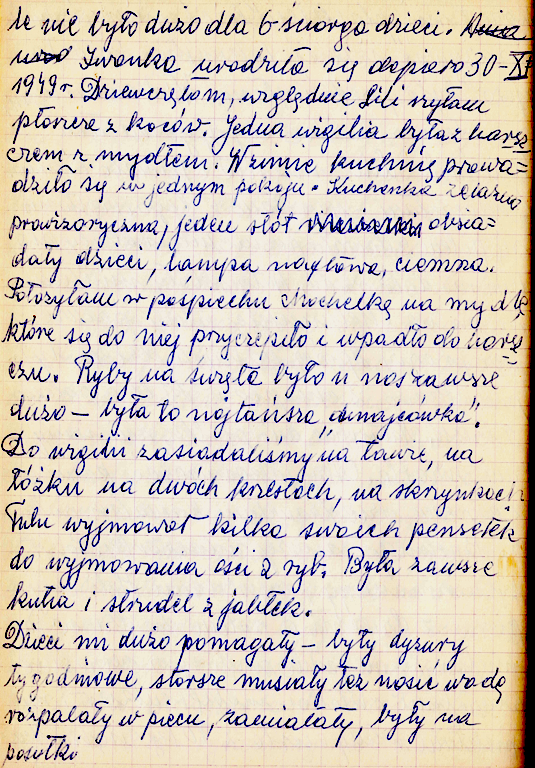 te nie było dużo dla 6-ściorga dzieci.
Iwonka urodziła się dopiero 30-XI
1949 r. Dziewczętom, względnie Lili szyłam
płaszcze z koców. Jedna wigilia była z barsz=
czem z mydłem. W zimie kuchnię prowa=
dziło się w jednym pokoju. Kuchenka żelazna
prowizoryczna, jeden stół obsia=
dały dzieci, lampa naftowa, ciemna.
Położyłam w pośpiechu chochelkę na mydle
które się do niej przyczepiło i wpadło do barsz
czu. Ryby na święta było u nas zawsze
dużo – była to najtańsza
Do wigilii zasiadaliśmy na ławie, na
łóżku na dwóch krzesłach, na skrzynkach
Tulu wyjmował kilka swoich penzetek
do wyjmowania ości z ryb. Była zawsze
kutia i strudel z jabłek.
Dzieci mi dużo pomagały – były dyżury
tygodniowe, starsze musiały też nosić wodę
rozpalały w piecu, zamiatały, były na
posyłki